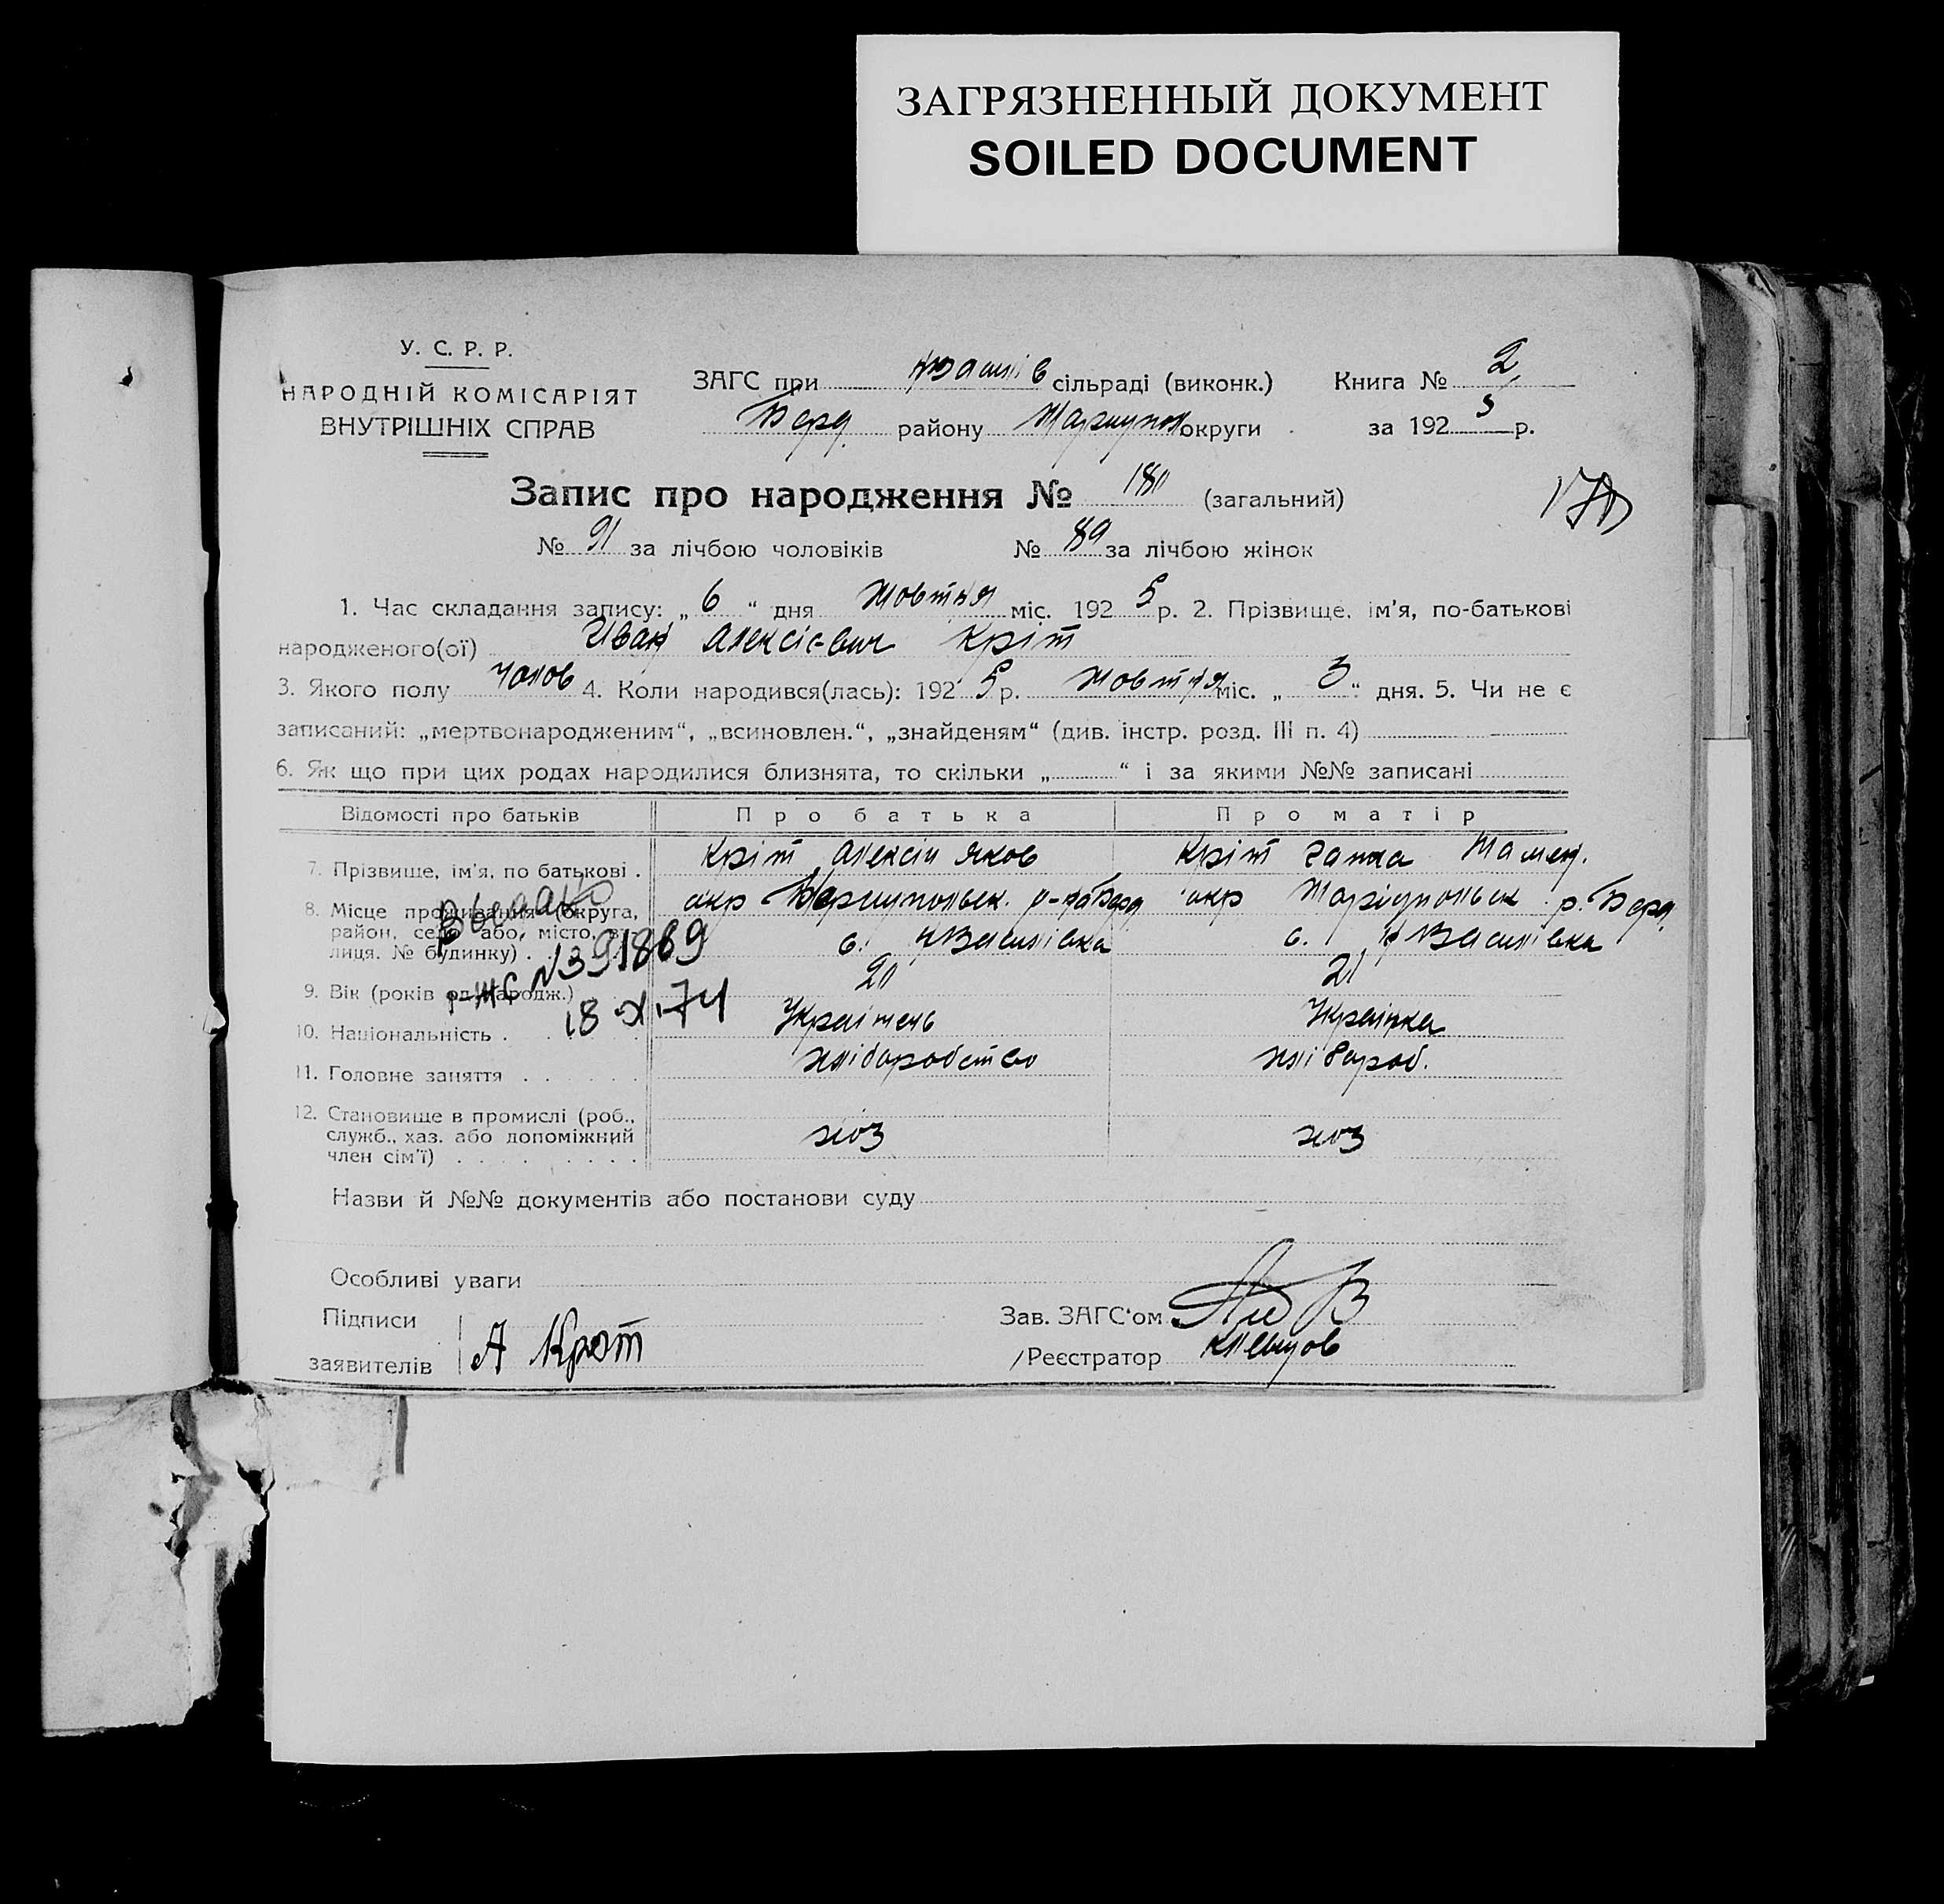 ЗАГРЯЗНЕННЫЙ ДОКУМЕНТ
SOILED DOCUMENT
У. С. Р. Р.
НАРОДНІЙ КОМІСАРІЯТ
ВНУТРІШНІХ СПРАВ
ЗАГС при сільраді (виконк.) Книга № 2
Берд. району Маріупол округи за 1925 р.
Запис про народження № 180 (загальний)
№ 91 за лічбою чоловіків № 89 за лічбою жінок
1. Час складання запису: „ 6 “ дня жовтня міс. 1925 р. 2. Прізвище, ім'я, по-батькові
народженого(ої) Иван Алексієвич Кріт
3. Якого полу чолов 4. Коли народився(лась): 1925 р. жовтня міс. „ 3 “ дня. 5. Чи не є
записаний: „мертвонародженим“, „всиновлен.“, „знайденям“ (див. інстр. розд. III п. 4)
6. Як що при цих родах народилися близнята, то скільки „ “ і за якими №№ записані
Відомості про батьків Про батька Про матір
7. Прізвище, ім'я, по батькові . Кріт Алексій Яков Кріт Ганна
8. Місце проживання (округа, район, село або, місто, ву-лиця. № будинку) . окр Маріупольск. р-на Берд окр Маріупольск р. Берд.
с. НВасилівка с. НВасилівка
Выдано
I-ЖС №391869
18-X-74
9. Вік (років од народж.) 20 21
10. Національність . Українець Українка
11. Головне заняття хліборобство хлібороб.
12. Становище в промислі (роб., служб., хаз. або допоміжний член сім'ї) хоз хоз
Назви й №№ документів або постанови суду
Особливі уваги
Підписи
заявителів А Крот
Зав. ЗАГС'ом
/Реєстратор